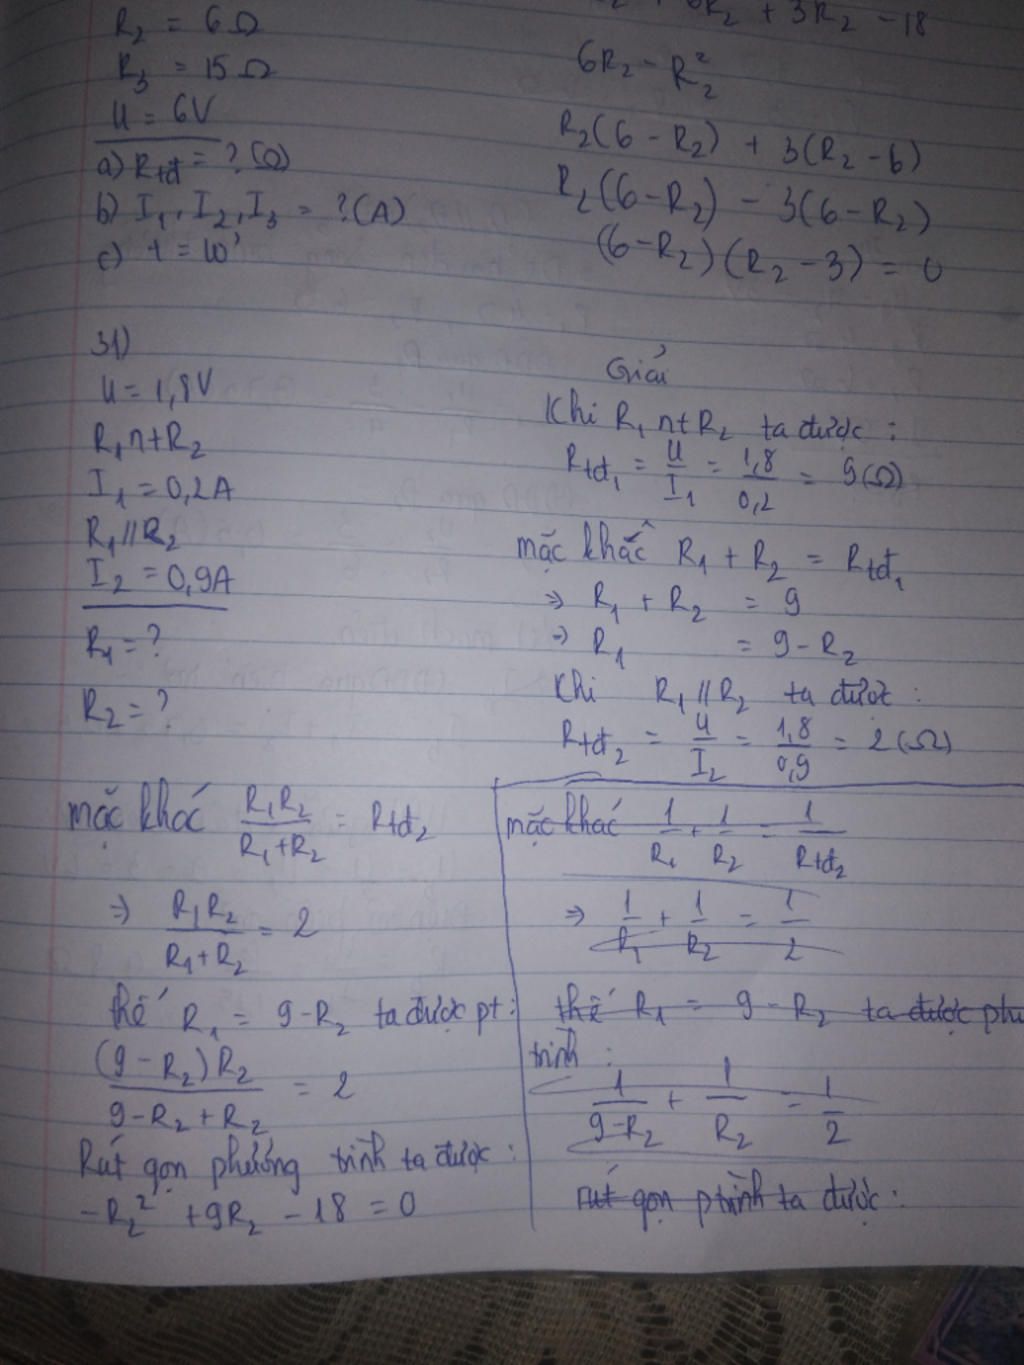 R₂ = 6Ω
R₃ = 15Ω
U = 6V
a) Rtđ = ? (Ω)
b) I₁, I₂, I₃ = ? (A)
c) t = 10'
6R₂ + 3R₂ - 18
6R₂ - R₂²
R₂(6 - R₂) + 3(R₂ - 6)
R₂(6 - R₂) - 3(6 - R₂)
(6 - R₂)(R₂ - 3) = 0
31)
U = 1,8V
R₁ nt R₂
I₁ = 0,2A
R₁ // R₂
I₂ = 0,9A
R₁ = ?
R₂ = ?
Giải
Khi R₁ nt R₂ ta được :
Rtđ₁ = U/I₁ = 1,8/0,2 = 9(Ω)
mặc khắc R₁ + R₂ = Rtđ₁
⇒ R₁ + R₂ = 9
⇒ R₁ = 9 - R₂
Khi R₁ // R₂ ta được :
Rtđ₂ = U/I₂ = 1,8/0,9 = 2(Ω)
mặc khác R₁R₂/(R₁+R₂) = Rtđ₂
⇒ R₁R₂/(R₁+R₂) = 2
thế R₁ = 9-R₂ ta được pt :
(9 - R₂)R₂/(9-R₂+R₂) = 2
Rút gọn phương trình ta được :
-R₂² + 9R₂ - 18 = 0
mặc khác 1/R₁ + 1/R₂ = 1/Rtđ₂
⇒ 1/R₁ + 1/R₂ = 1/2
thế R₁ = 9 - R₂ ta được phư
trình :
1/(9-R₂) + 1/R₂ = 1/2
rút gọn ptrình ta được :